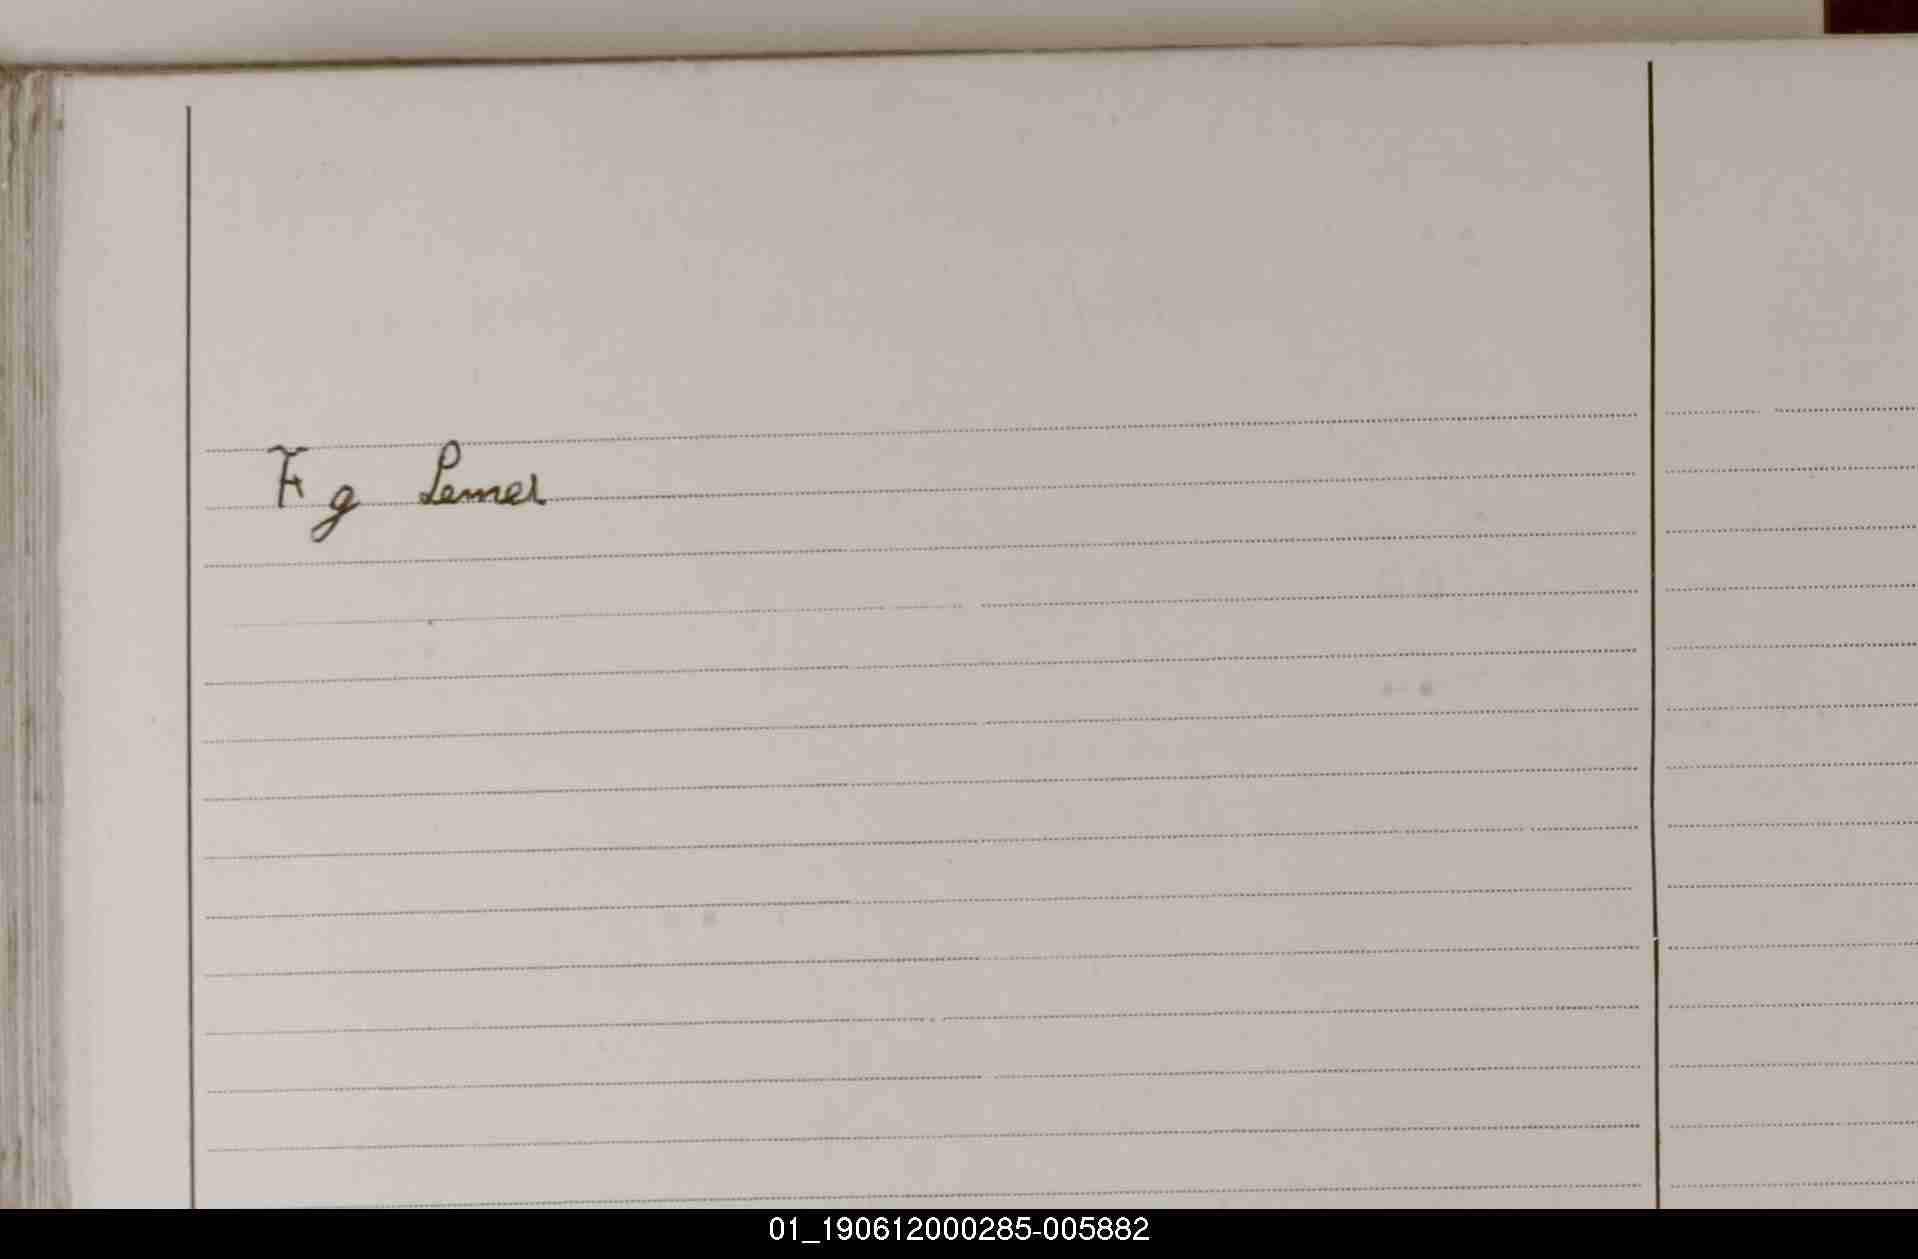 Fg Lemel
01_190612000285-005882